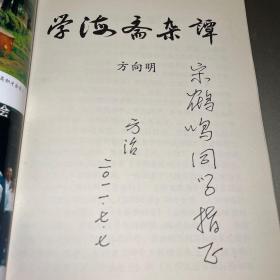 学海斋杂谭
方向明
宋鹤鸣同学指正
方治
二〇一一.七.七
会